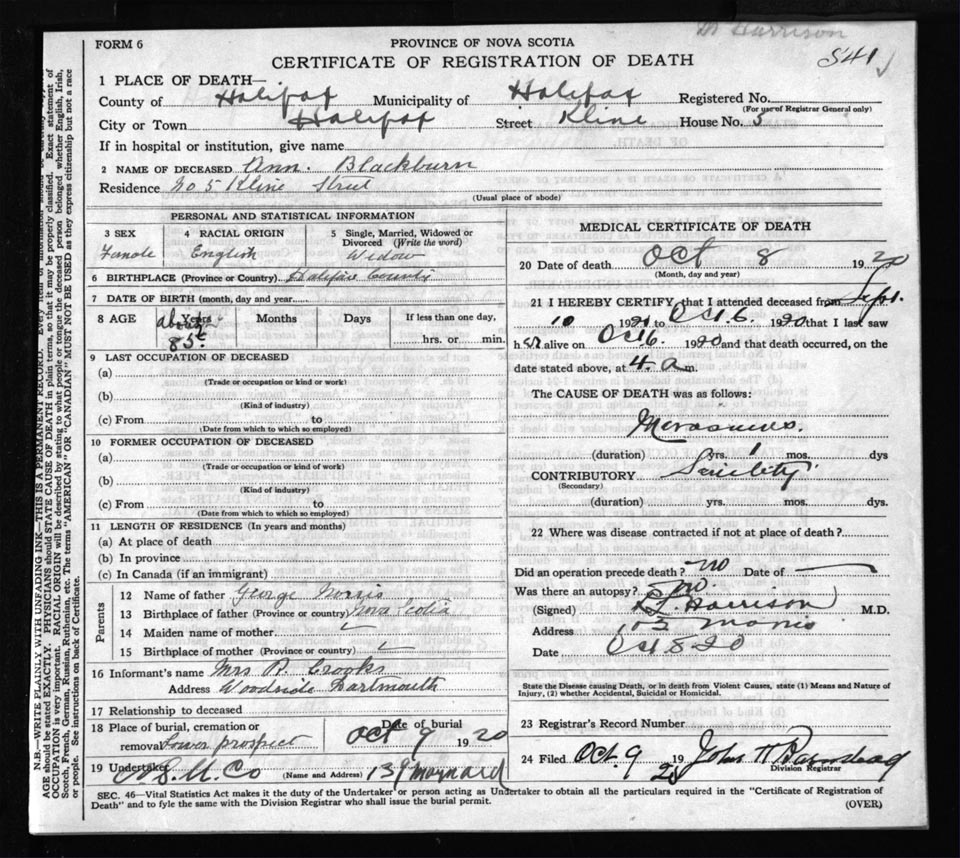 Dr Harrison
FORM 6
PROVINCE OF NOVA SCOTIA
541
CERTIFICATE OF REGISTRATION OF DEATH
1 PLACE OF DEATH—
County of Halifax Municipality of Halifax Registered No.
(For use of Registrar General only)
City or Town Halifax Street Kline House No. 5
If in hospital or institution, give name
2 NAME OF DECEASED Ann. Blackburn
Residence No 5 Kline Street
(Usual place of abode)
PERSONAL AND STATISTICAL INFORMATION
3 SEX 4 RACIAL ORIGIN 5 Single, Married, Widowed or Divorced (Write the word)
Female English Widow
6 BIRTHPLACE (Province or Country) Halifax County
7 DATE OF BIRTH (month, day and year)
8 AGE Years Months Days If less than one day,
about 85 hrs. or min.
9 LAST OCCUPATION OF DECEASED
(a)
(Trade or occupation or kind or work)
(b)
(Kind of industry)
(c) From to
(Date from which to which so employed)
10 FORMER OCCUPATION OF DECEASED
(a)
(Trade or occupation or kind or work)
(b)
(Kind of industry)
(c) From to
(Date from which to which so employed)
11 LENGTH OF RESIDENCE (In years and months)
(a) At place of death
(b) In province
(c) In Canada (if an immigrant)
Parents
12 Name of father George Norris
13 Birthplace of father (Province or country) Nova Scotia
14 Maiden name of mother
15 Birthplace of mother (Province or country)
16 Informant's name Mrs R. Crooks
Address Woodside Dartmouth
17 Relationship to deceased
18 Place of burial, cremation or Date of burial
removal Lower prospect Oct 9 1920
19 Undertaker N.S.U. Co (Name and Address) 139 maynard
MEDICAL CERTIFICATE OF DEATH
20 Date of death Oct 8 1920
(Month, day and year)
21 I HEREBY CERTIFY that I attended deceased from Sept.
10 1920 to Oct 6. 1920 that I last saw
her alive on Oct 6. 1920 and that death occurred, on the
date stated above, at 4 a m.
The CAUSE OF DEATH was as follows:
Marasmus.
(duration) yrs. 1 mos. dys
CONTRIBUTORY Senility
(Secondary)
(duration) yrs. mos. dys.
22 Where was disease contracted if not at place of death?
Did an operation precede death? no Date of
Was there an autopsy? no.
(Signed) Harrison M.D.
Address 103 Morris
Date Oct 8 20
State the Disease causing Death, or in death from Violent Causes, state (1) Means and Nature of
Injury, (2) whether Accidental, Suicidal or Homicidal.
23 Registrar's Record Number
24 Filed Oct. 9 1920 John H Barnstead
Division Registrar
SEC. 46—Vital Statistics Act makes it the duty of the Undertaker or person acting as Undertaker to obtain all the particulars required in the "Certificate of Registration of
Death" and to fyle the same with the Division Registrar who shall issue the burial permit.
(OVER)
N.B.—WRITE PLAINLY WITH UNFADING INK—THIS IS A PERMANENT RECORD. Every item of information should be carefully
AGE should be stated EXACTLY. PHYSICIANS should STATE CAUSE OF DEATH in plain terms, so that it may be properly classified. Exact statement of
OCCUPATION is very important. RACIAL ORIGIN will be described by stating to what people or tongue the deceased person belonged, whether English, Irish,
Scotch, French, German, Russian, Ruthenian, etc. The terms "AMERICAN" OR "CANADIAN" MUST NOT BE USED as they express citizenship but not a race
or people. See instructions on back of Certificate.